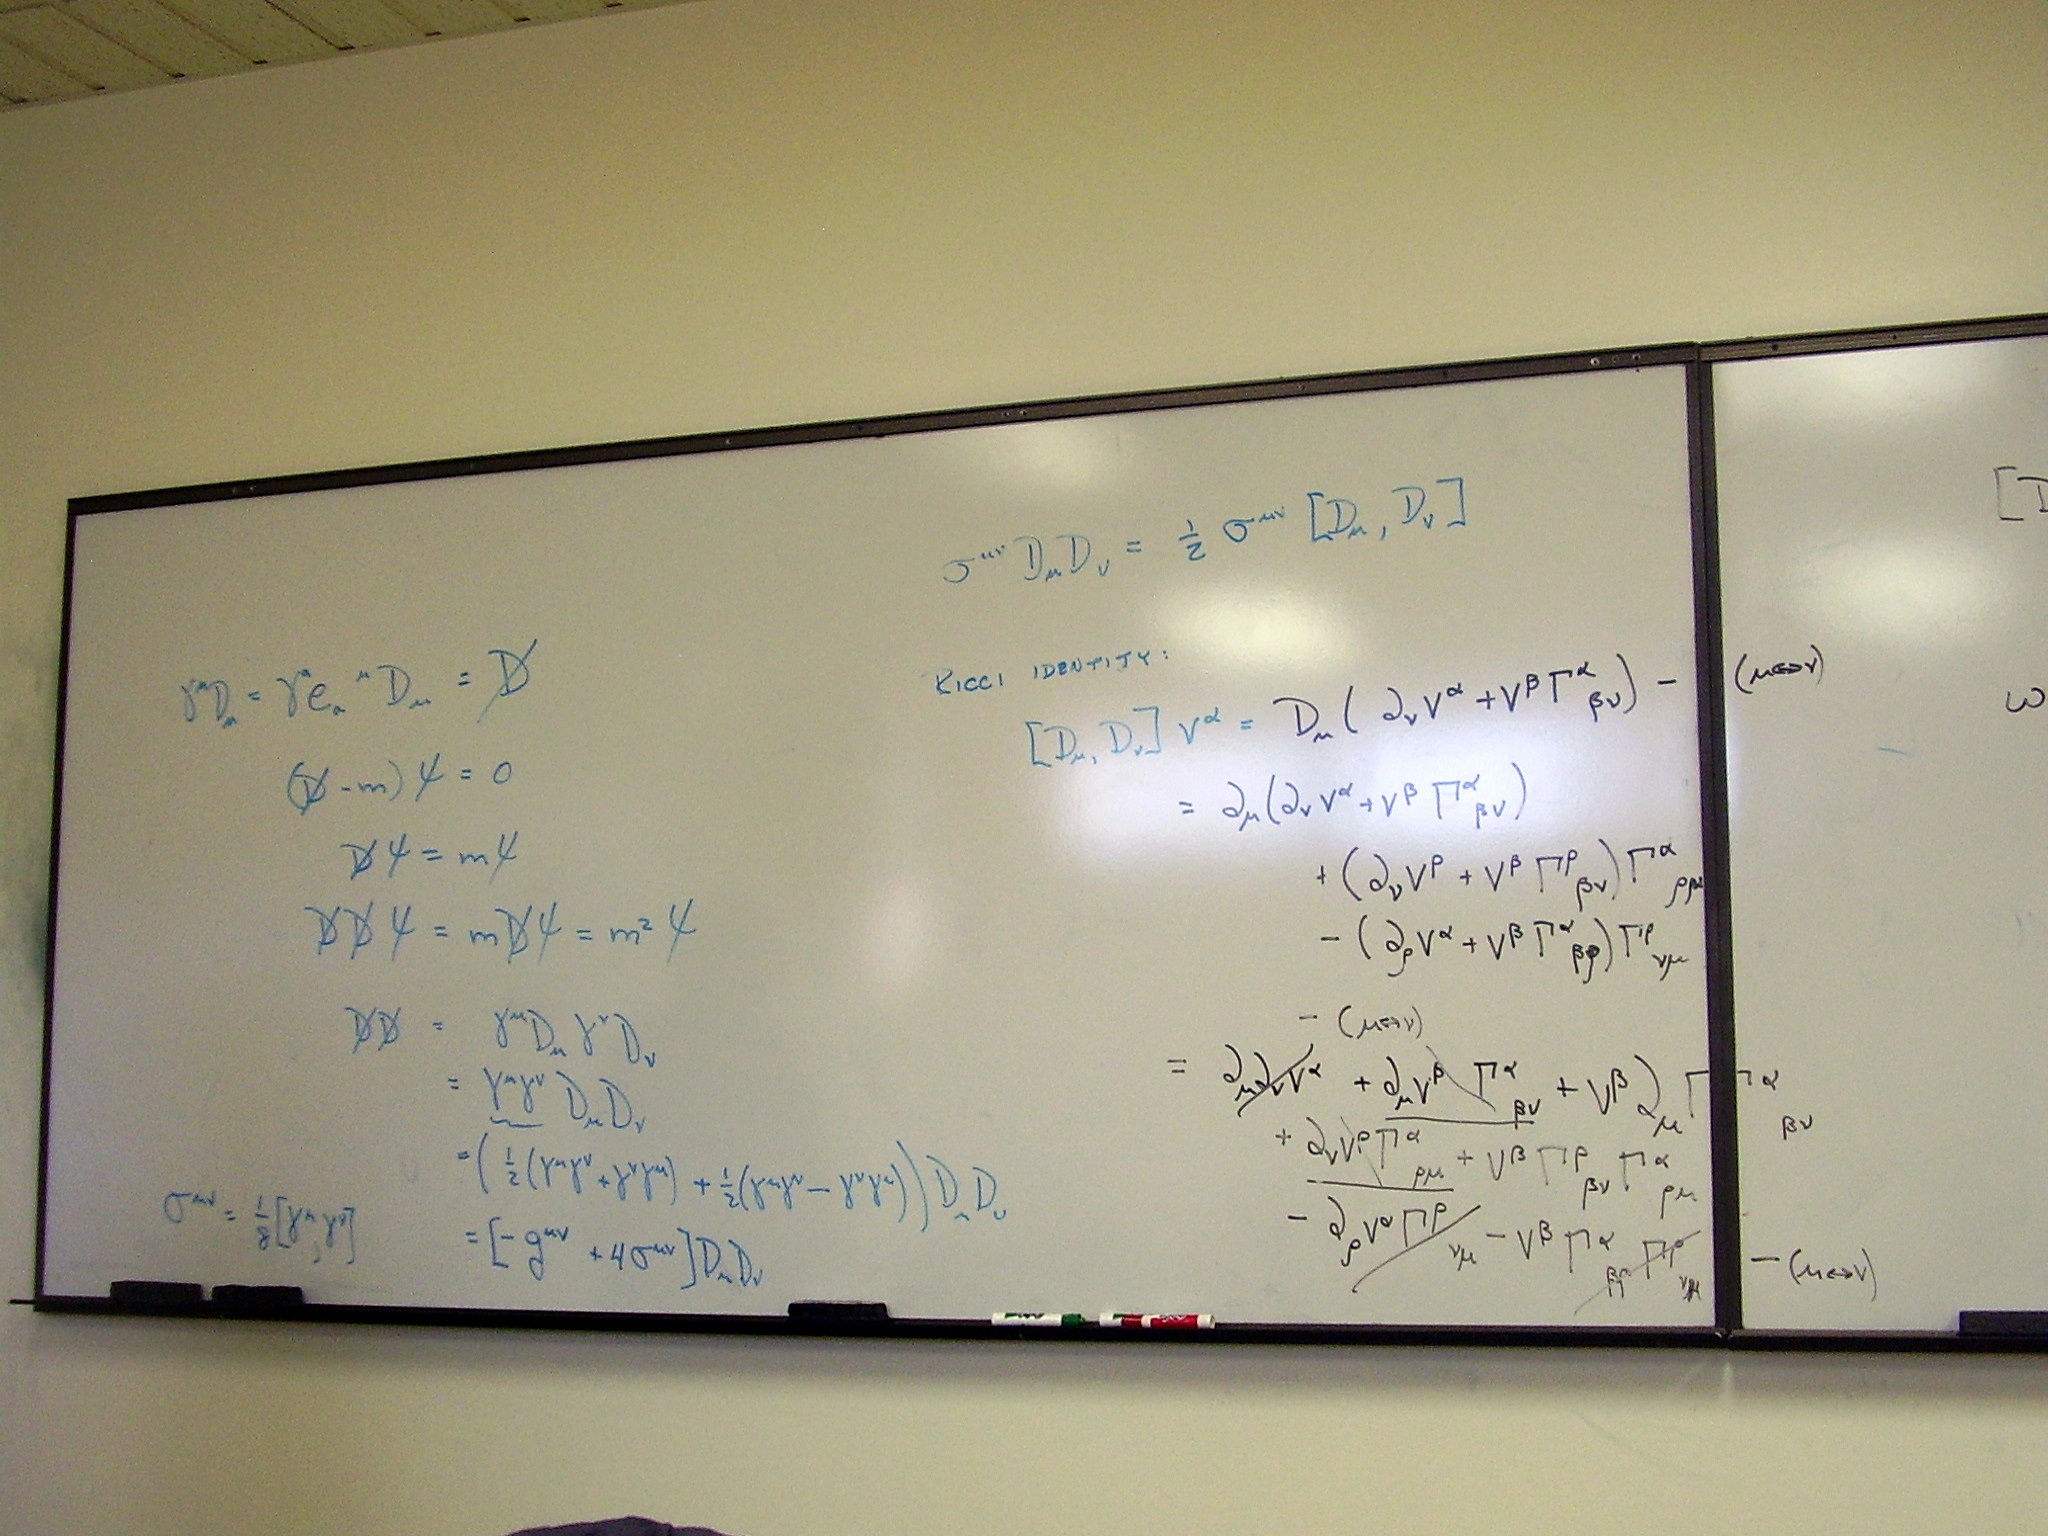 σ^{μν} D_μ D_ν = ½ σ^{μν} [D_μ, D_ν]
γ^a D_a = γ^a e_a^μ D_μ = D̸
(D̸ - m) ψ = 0
D̸ ψ = mψ
D̸ D̸ ψ = m D̸ ψ = m² ψ
D̸ D̸ = γ^μ D_μ γ^ν D_ν
= γ^μ γ^ν D_μ D_ν
= (½(γ^μ γ^ν + γ^ν γ^μ) + ½(γ^μ γ^ν - γ^ν γ^μ)) D_μ D_ν
σ^{μν} = ⅛ [γ^μ, γ^ν]
= [-g^{μν} + 4σ^{μν}] D_μ D_ν
RICCI IDENTITY:
[D_μ, D_ν] V^α = D_μ (∂_ν V^α + V^β Γ^α_{βν}) - (μ↔ν)
= ∂_μ (∂_ν V^α + V^β Γ^α_{βν})
+ (∂_ν V^ρ + V^β Γ^ρ_{βν}) Γ^α_{ρμ}
- (∂_ρ V^α + V^β Γ^α_{βρ}) Γ^ρ_{νμ}
- (μ↔ν)
= ∂_μ ∂_ν V^α + ∂_μ V^β Γ^α_{βν} + V^β ∂_μ Γ^α_{βν}
+ ∂_ν V^ρ Γ^α_{ρμ} + V^β Γ^ρ_{βν} Γ^α_{ρμ}
- ∂_ρ V^α Γ^ρ_{νμ} - V^β Γ^α_{βρ} Γ^ρ_{νμ} - (μ↔ν)
[D
ω